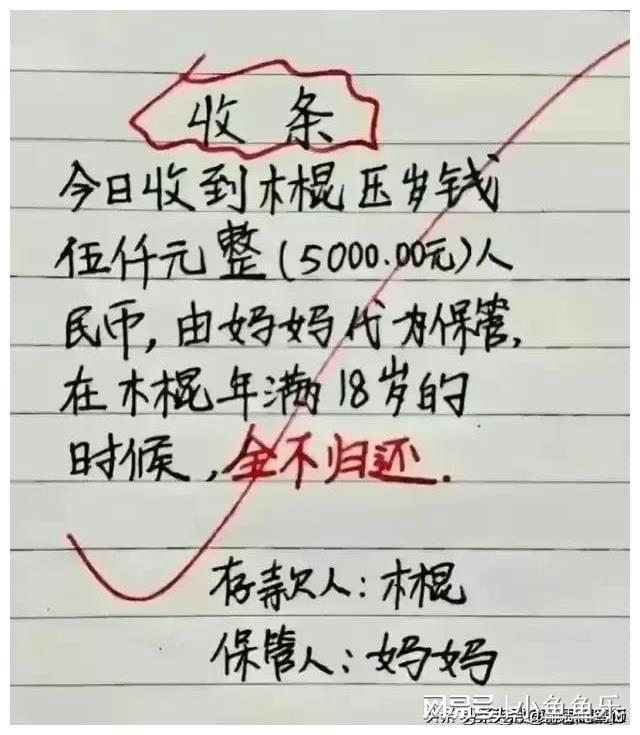 收条
今日收到木棍压岁钱
伍仟元整(5000.00元)人
民币,由妈妈代为保管,
在木棍年满18岁的
时候,全不归还.
存款人:木棍
保管人:妈妈
网易号 | 小鱼鱼乐